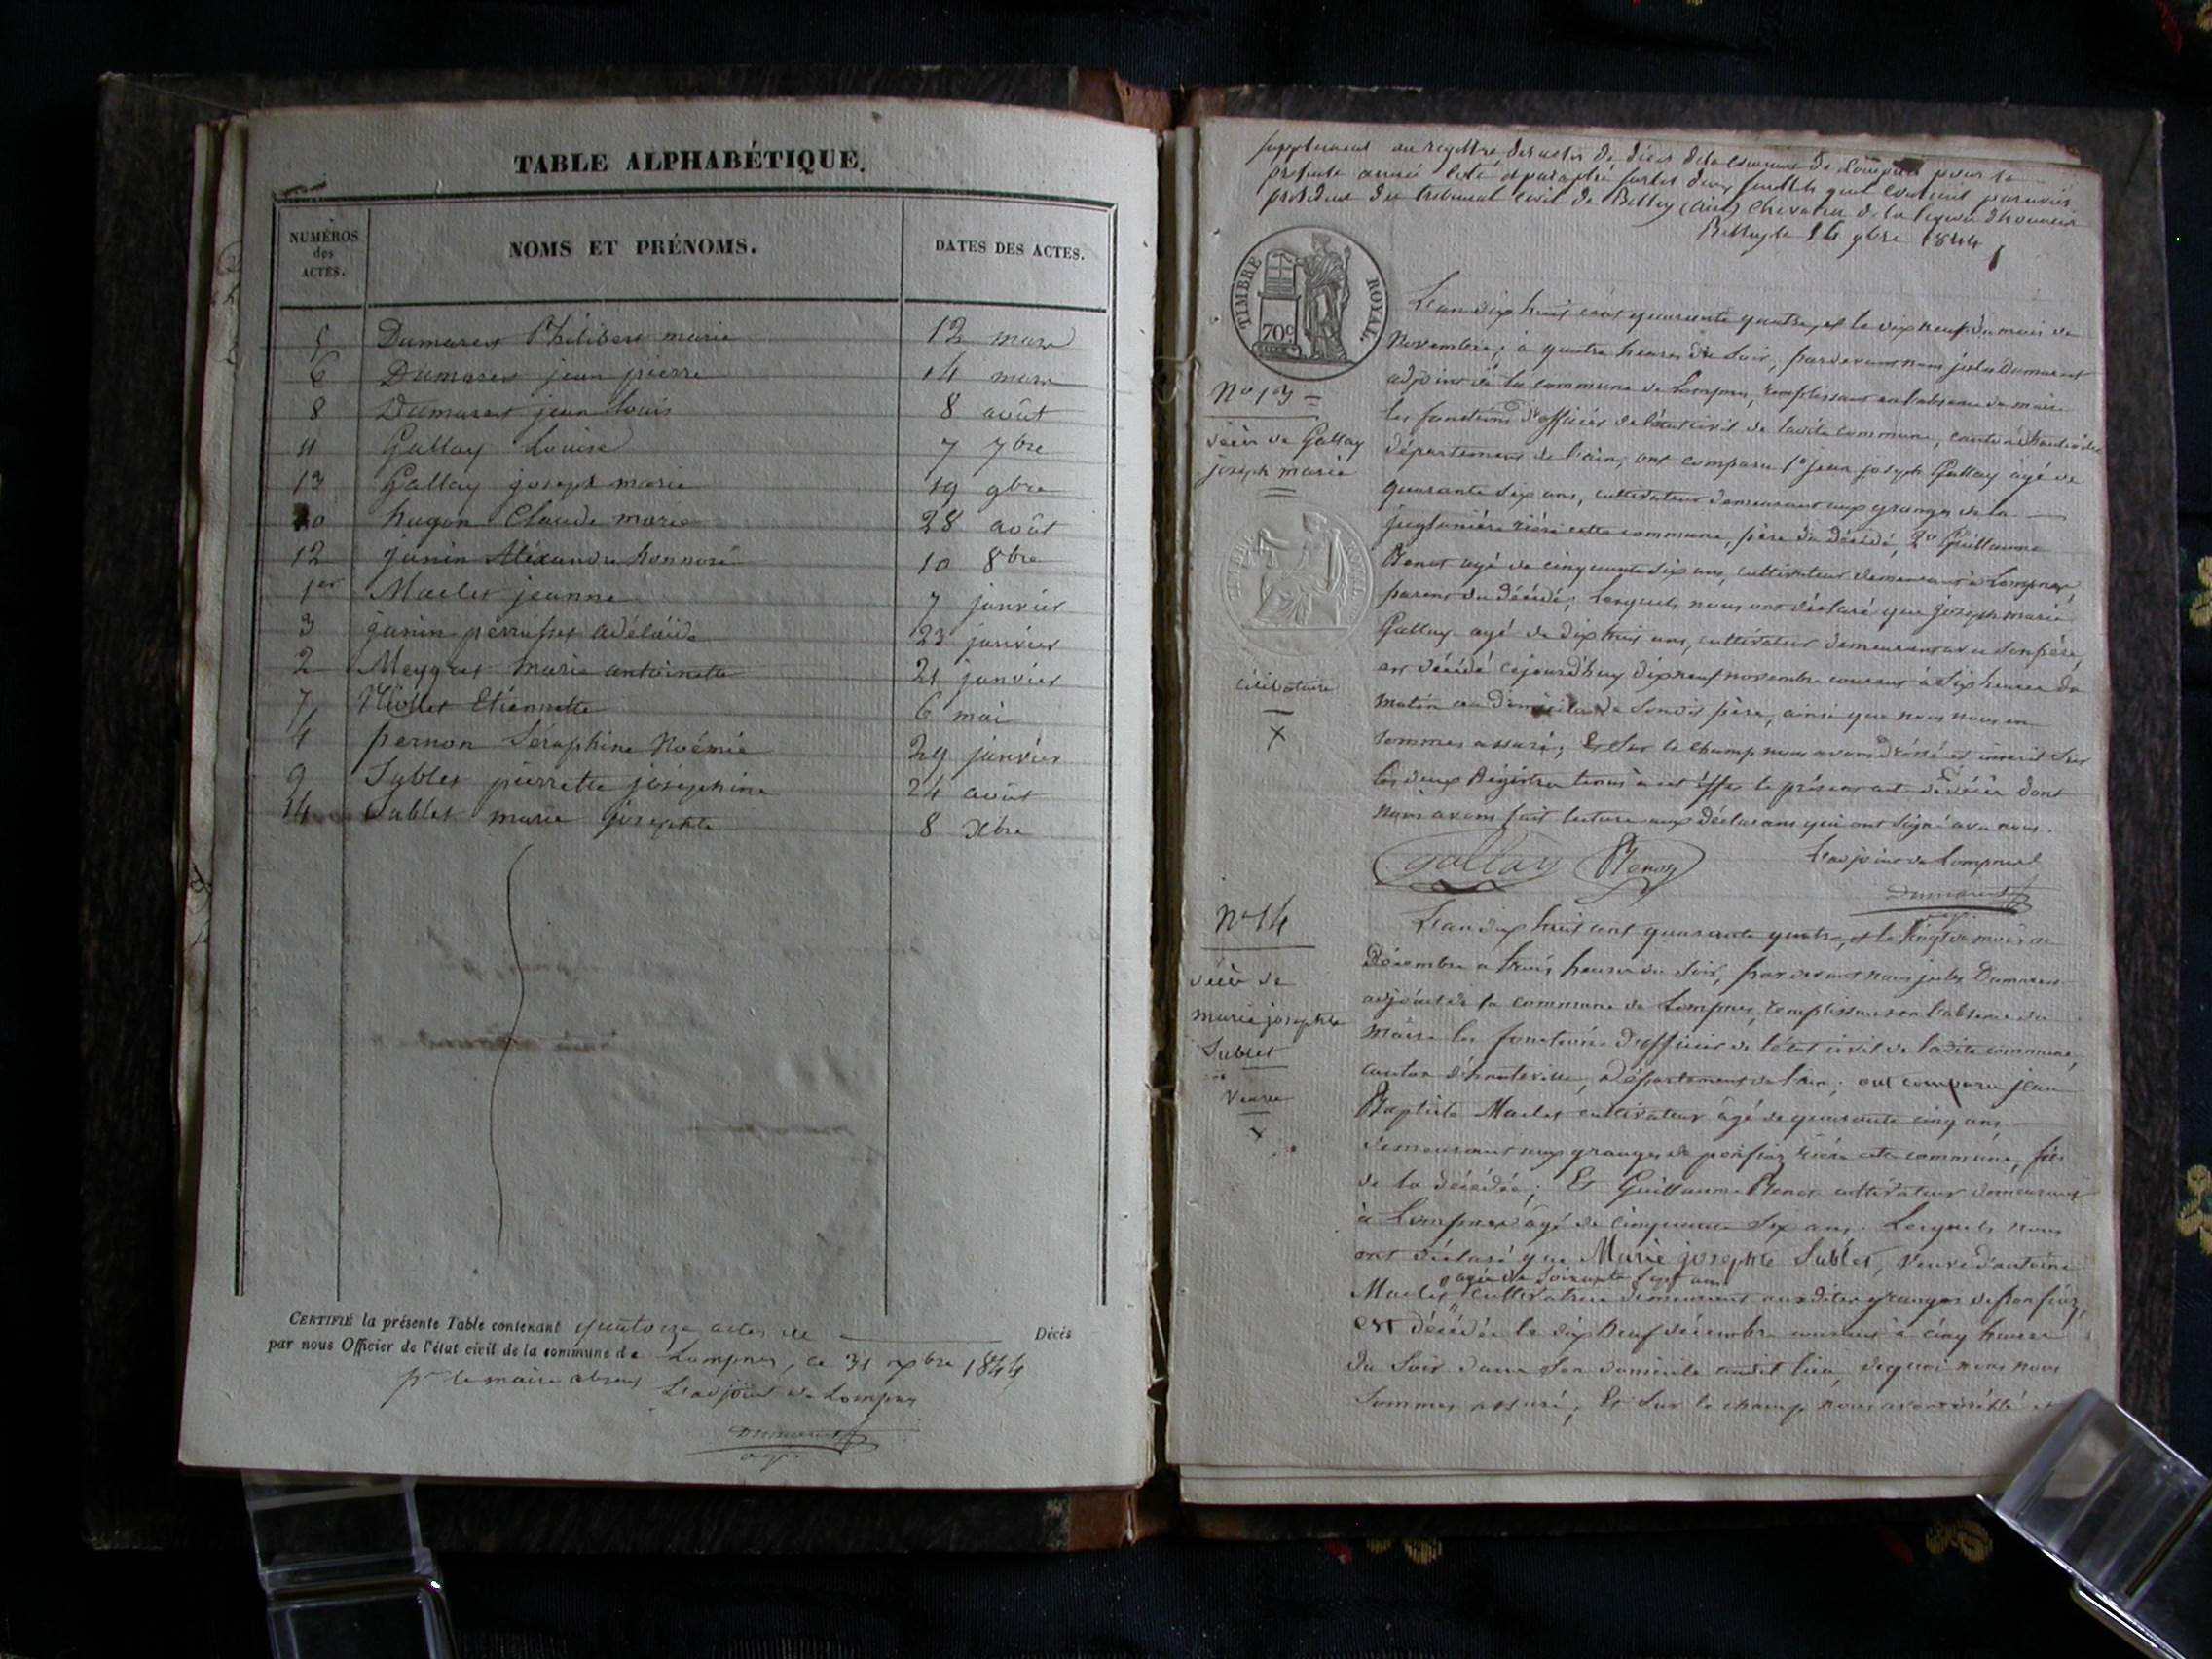 TABLE ALPHABÉTIQUE.
NUMÉROS des ACTES. NOMS ET PRÉNOMS. DATES DES ACTES.
5 Dumarest Philibert marie 12 mars
6 Dumarest jean pierre 14 mars
8 Dumarest jean Louis 8 août
11 Gallay Louise 7 7bre
13 Gallay joseph marie 19 9bre
10 hugon Claude marie 28 août
12 janin Aléxandre honnoré 10 8bre
1er Maclet jeanne 7 janvier
3 janin perruset adélaïde 23 janvier
2 Meygret marie antoinette 21 janvier
7 Niollet Etiennette 6 mai
4 pernon Séraphine Noémie 29 janvier
9 Sublet pierrette joséphine 24 août
14 Sublet marie josephte 8 Xbre
CERTIFIÉ la présente Table contenant quatorze actes de Décès
par nous Officier de l'état civil de la commune de Lompnes, ce 31 Xbre 1844
pr le maire absent L'adjoint de Lompnes
Dumarest
adj.
supplément au registre des actes de décès de la commune de Lompnes pour la
présente année coté et paraphé sur les deux feuillets qu'il contient par nous
président du tribunal civil de Belley (Ain) Chevalier de la légion d'honneur
Belley le 16 9bre 1844
TIMBRE ROYAL.
70c
No 13
décès de Gallay
joseph marie
célibataire
X
L'an dix huit cent quarante quatre, et le dix neuf du mois de
Novembre, à quatre heures du Soir, pardevant nous jules Dumarest
adjoint de la commune de Lompnes, remplissant en l'absence du maire
les fonctions d'officier de l'état civil de ladite commune, canton d'hauteville
département de l'ain, ont comparu 1o jean joseph Gallay âgé de
quarante Six ans, cultivateur demeurant aux granges de la
rière cette commune, père du décédé, 2o Guillaume
Benot agé de cinquante Six ans, cultivateur demeurant à Lompnes,
parent du décédé; Lesquels nous ont déclaré que joseph marie
Gallay agé de dix huit ans, cultivateur demeurant avec Son père,
est décédé cejourd'huy dix neuf novembre courant à Six heures du
matin au Domicile de Sondit père, ainsi que nous nous en
Sommes assuré; Et Sur le champ nous avons dréssé et inscrit Sur
les deux Régistres tenus à cet éffet le présent acte de décès dont
Nous avons fait lecture aux déclarans qui ont Signé avec nous.
Gallay Benot L'adjoint de Lompnes
Dumarest
No 14
décès de
marie josephte
Sublet
Veuve
X
L'an dix huit cent quarante quatre, et le vingt du mois de
Décembre à trois heures du Soir, par devant nous jules Dumarest
adjoint de la commune de Lompnes, remplissant en l'absence du
Maire les fonctions d'officier de l'état civil de ladite commune,
canton d'hauteville, Département de l'ain, ont comparu jean
Baptiste Maclet cultivateur âgé de quarante cinq ans
demeurant aux granges de ponfioz rière cette commune, fils
de la décédée; Et Guillaume Benot cultivateur demeurant
à Lompnes âgé de Cinquante Six ans. Lesquels nous
ont déclaré que Marie josephte Sublet, Veuve d'antoine
agée de Soixante Sept ans
Maclet cultivatrice demeurant auxdites granges de ponfioz,
est décédée le dix Neuf décembre courant à cinq heures
du Soir dans Son domicile audit lieu, dequoi nous nous
Sommes assuré; Et Sur le champ nous avons dréssé et